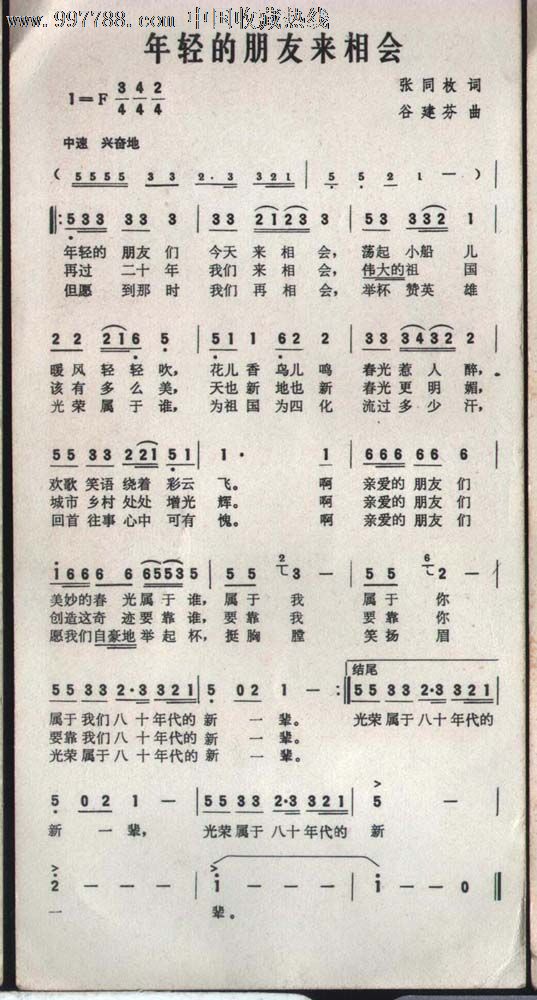 www.997788.com 中国收藏热线
年轻的朋友来相会
1=F 3/4 4/4 2/4
张同枚 词
谷建芬 曲
中速 兴奋地
( 5555 33 2·3 321 | 5 5 2 1 — )
‖: 533 33 3 | 33 2123 3 | 53 332 1 |
年轻的 朋友们 今天 来相会, 荡起 小船儿
再过 二十年 我们 来相会, 伟大的祖国
但愿 到那时 我们 再相会, 举杯 赞英雄
2 2 216 5 | 51 1 62 2 | 33 3432 2 |
暖风轻轻吹, 花儿香鸟儿鸣 春光惹人醉,
该有多么美, 天也新地也新 春光更明媚,
光荣属于谁, 为祖国为四化 流过多少汗,
55 33 221 51 | 1· 1 | 666 66 6 |
欢歌笑语绕着彩云 飞。 啊 亲爱的朋友们
城市乡村处处增光 辉。 啊 亲爱的朋友们
回首往事心中可有 愧。 啊 亲爱的朋友们
1666 6 6 65535 | 55 3 — | 55 2 — |
美妙的春光属于谁, 属于我 属于你
创造这奇迹要靠谁, 要靠我 要靠你
愿我们自豪地举起杯, 挺胸膛 笑扬眉
结尾
55 33 2·3 321 | 5 02 1 — :‖ 55 33 2·3 321 |
属于我们八十年代的 新一辈。 光荣属于八十年代的
要靠我们八十年代的 新一辈。
光荣属于八十年代的 新一辈。
5 02 1 — | 55 33 2·3 321 | 5 — |
新一辈, 光荣属于八十年代的 新
2 — — — | 1 — — — | 1 — — 0 ‖
一 辈。